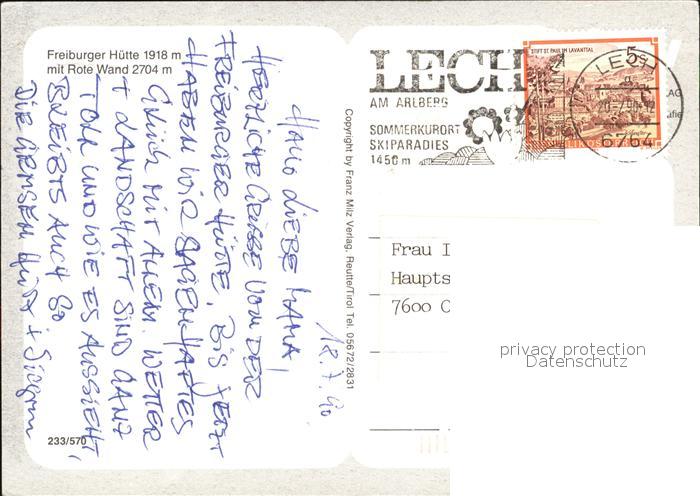 Freiburger Hütte 1918 m
mit Rote Wand 2704 m
18.7.90
HALLO LIEBE MAMA,
HERZLICHE GRÜSSE VON DER
FREIBURGER HÜTTE, BIS JETZT
HABEN WIR SAGENHAFTES
GLÜCK MIT ALLEM. WETTER
+ LANDSCHAFT SIND GANZ
TOLL UND WIE ES AUSSIEHT,
BLEIBTS AUCH SO
DIE GEMSEN
+
233/570
Copyright by Franz Milz Verlag, Reutte/Tirol Tel. 05672/2831
LECH
AM ARLBERG
SOMMERKURORT
SKIPARADIES
1450 m
STIFT ST. PAUL IM LAVANTTAL
5
LECH
6764
Frau I
Haupts
7600 O
privacy protection
Datenschutz